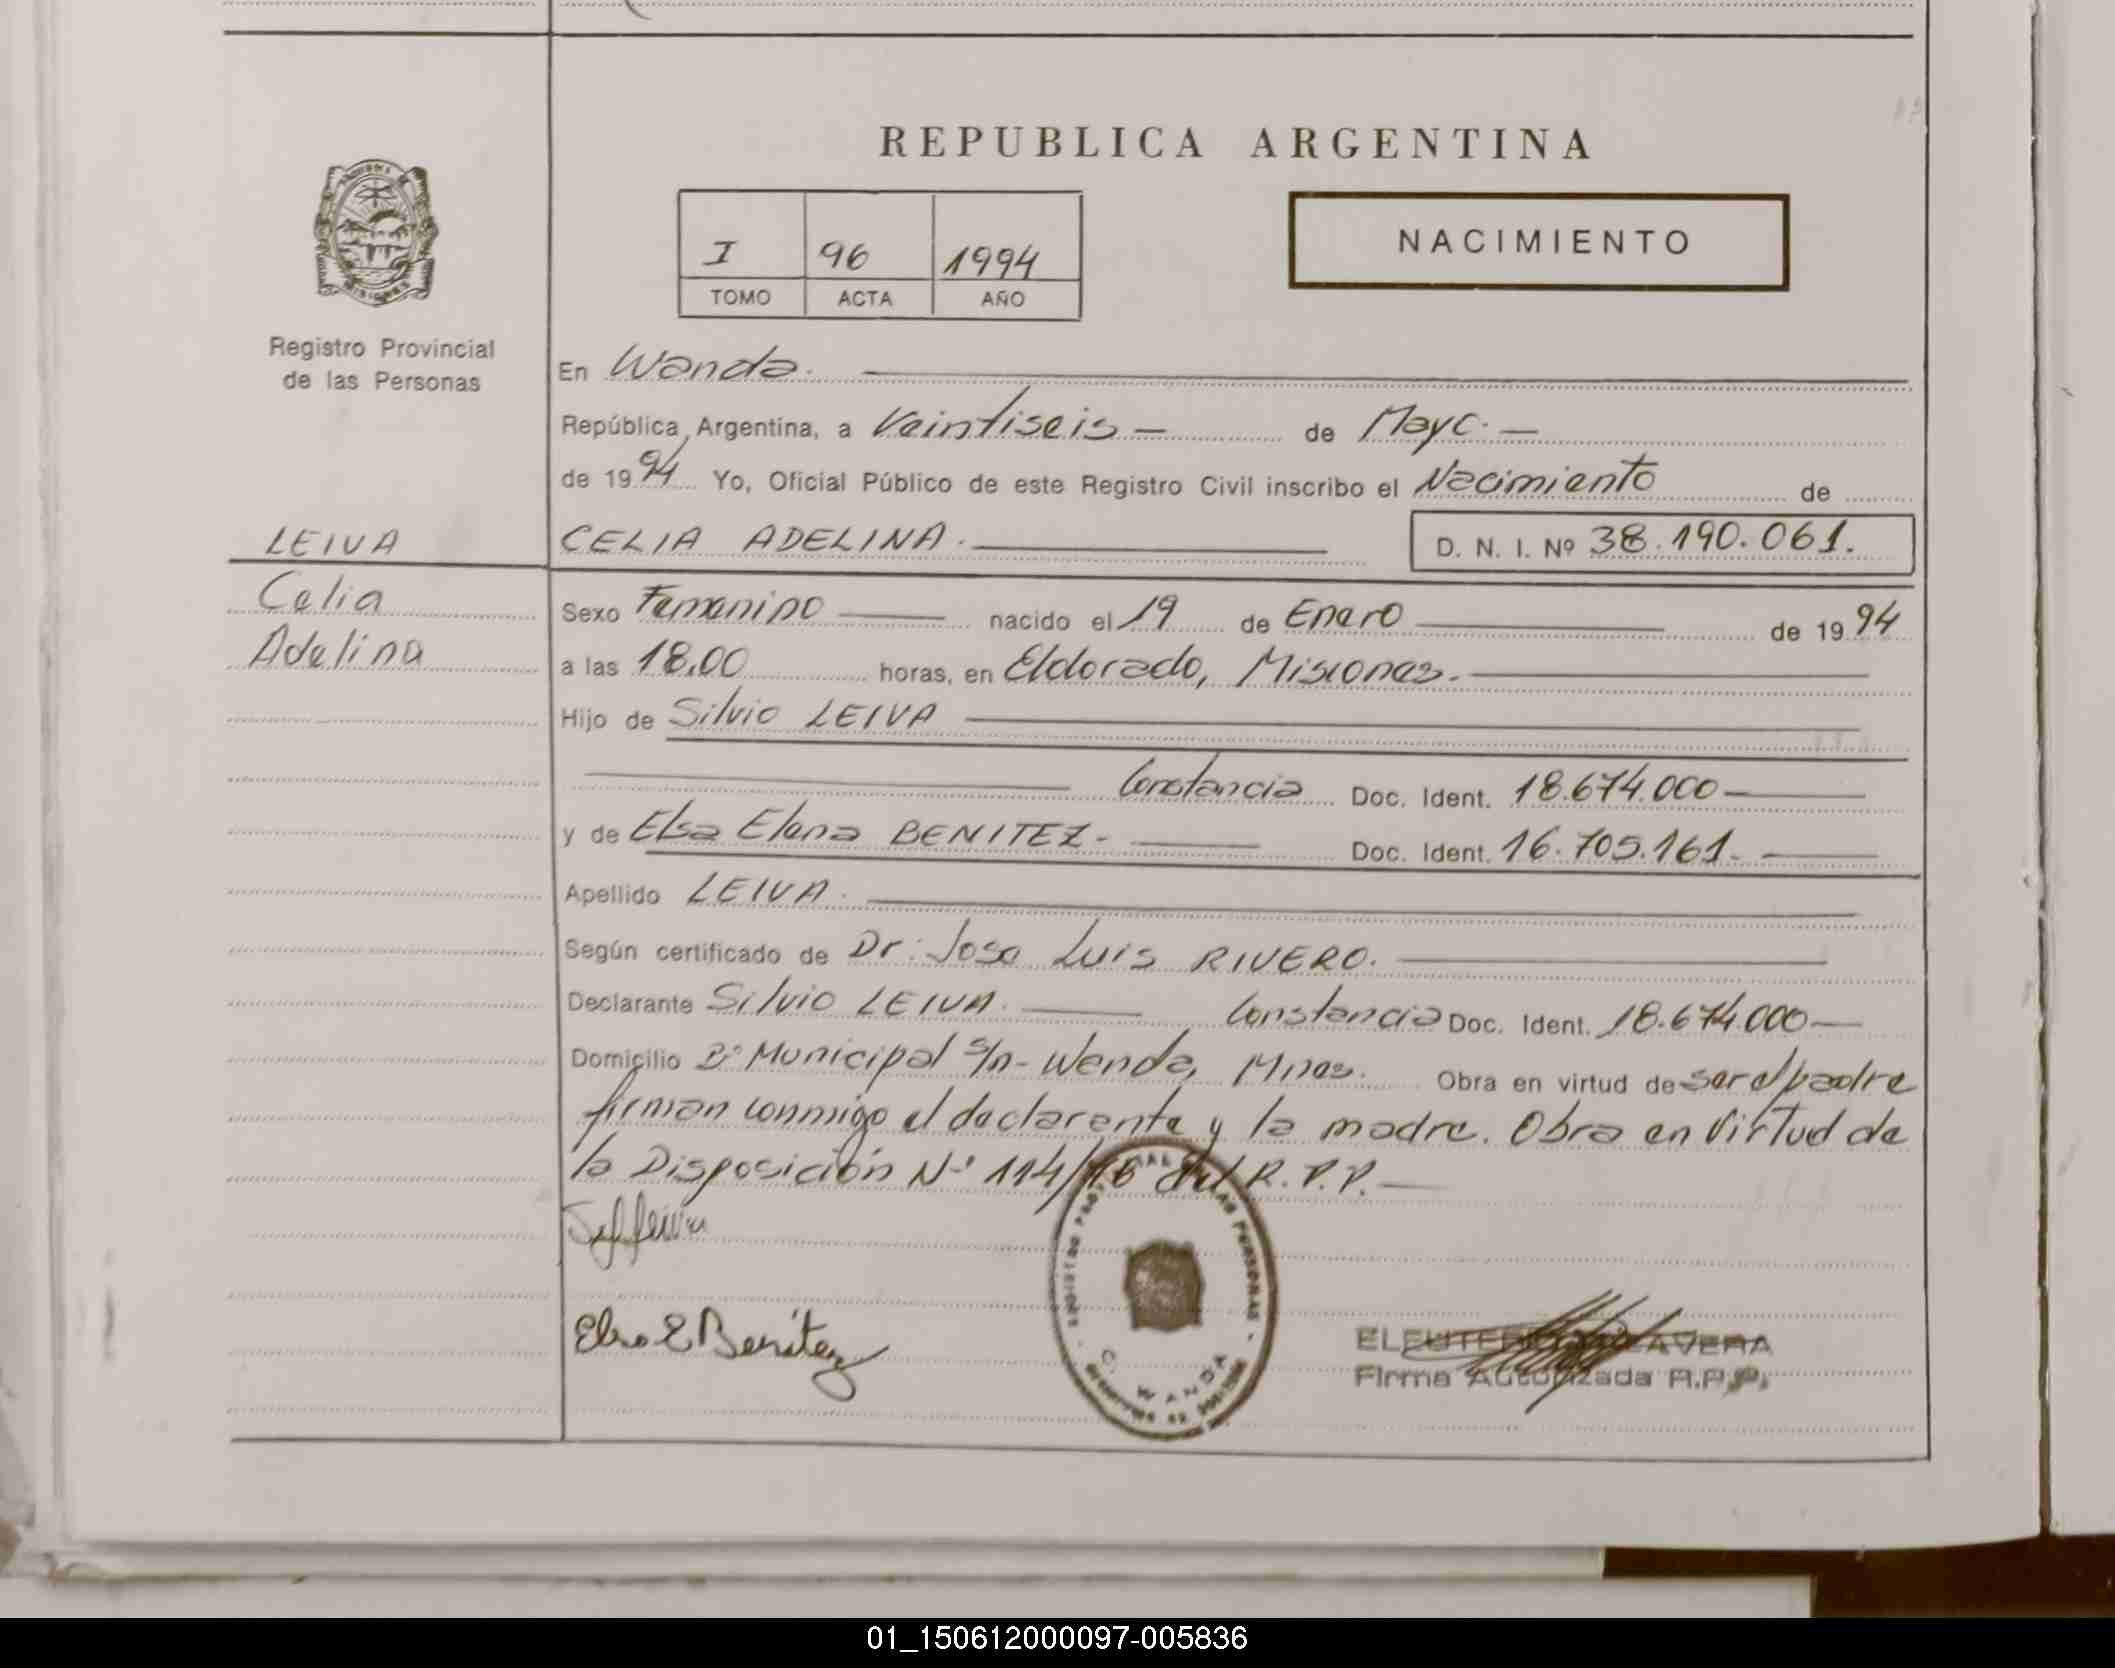 REPUBLICA ARGENTINA
I 96 1994
TOMO ACTA AÑO
NACIMIENTO
Registro Provincial
de las Personas
En Wanda.
República Argentina, a Veintiseis — de Mayo. —
de 1994 Yo, Oficial Público de este Registro Civil inscribo el Nacimiento de
LEIVA
CELIA ADELINA. D. N. I. Nº 38.190.061.
Celia
Adelina
Sexo Femenino nacido el 19 de Enero de 1994
a las 18,00 horas, en Eldorado, Misiones.
Hijo de Silvio LEIVA
Constancia Doc. Ident. 18.674.000
y de Elsa Elena BENITEZ. Doc. Ident. 16.705.161.
Apellido LEIVA.
Según certificado de Dr. Jose Luis RIVERO.
Declarante Silvio LEIVA. Constancia Doc. Ident. 18.674.000
Domicilio Bº Municipal s/n - Wanda, Mnes. Obra en virtud de ser el padre
firman conmigo el declarante y la madre. Obra en Virtud de
la Disposición Nº 114/76 del R.P.P.
Leiva
Elsa E Benítez
WANDA
ELEUTERIO TALAVERA
Firma Autorizada R.P.P.
01_150612000097-005836